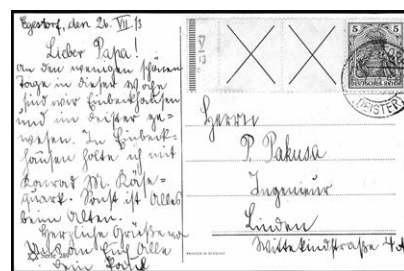 Egestorf, den 26. VII. 13
Lieber Papa!
An den wenigen schönen
Tage in dieser Woche
sind wir Einbeckhausen
und im Deister ge=
wesen. In Einbeck=
hausen holte ich mit
Konrad M. Käse=
quark. Sonst ist Alles
beim Alten.
Herzliche Grüße von
an Euch Alle
Dein
Serie 289
V
13
5 5
DEUTSCHES REICH
(DEISTER)
Herrn
P. Pakusa
Ingenieur
Linden
Wittekindstraße